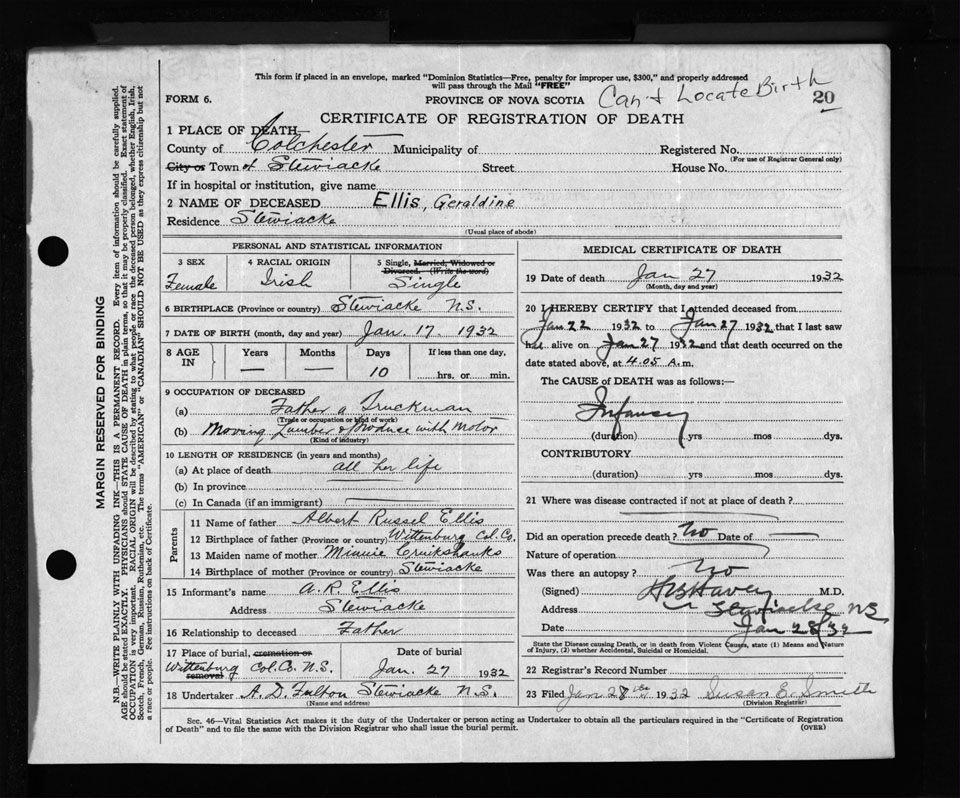 This form if placed in an envelope, marked "Dominion Statistics—Free, penalty for improper use, $300," and properly addressed
will pass through the Mail "FREE"
FORM 6.
PROVINCE OF NOVA SCOTIA
Can't Locate Birth
20
CERTIFICATE OF REGISTRATION OF DEATH
1 PLACE OF DEATH
County of Colchester Municipality of Registered No.
(For use of Registrar General only)
City or Town of Stewiacke Street House No.
If in hospital or institution, give name
2 NAME OF DECEASED Ellis, Geraldine
Residence Stewiacke
(Usual place of abode)
PERSONAL AND STATISTICAL INFORMATION
3 SEX 4 RACIAL ORIGIN 5 Single, Married, Widowed or
Divorced. (Write the word)
Female Irish Single
6 BIRTHPLACE (Province or country) Stewiacke N.S.
7 DATE OF BIRTH (month, day and year) Jan. 17. 1932
8 AGE IN Years Months Days If less than one day,
— — 10 hrs. or min.
9 OCCUPATION OF DECEASED
(a) Father a Truckman
(Trade or occupation or kind of work)
(b) Moving Lumber & with Motor
(Kind of industry)
10 LENGTH OF RESIDENCE (in years and months)
(a) At place of death all her life
(b) In province
(c) In Canada (if an immigrant)
Parents
11 Name of father Albert Russel Ellis
12 Birthplace of father (Province or country) Wittenburg Col. Co.
13 Maiden name of mother Minnie Cruikshanks
14 Birthplace of mother (Province or country) Stewiacke
15 Informant's name A. R. Ellis
Address Stewiacke
16 Relationship to deceased Father
17 Place of burial, cremation or removal Date of burial
Wittenburg Col. Co. N.S. Jan. 27 1932
18 Undertaker A. D. Fulton Stewiacke N.S.
(Name and address)
MEDICAL CERTIFICATE OF DEATH
19 Date of death Jan 27 1932
(Month, day and year)
20 I HEREBY CERTIFY that I attended deceased from
Jan 22 1932 to Jan 27 1932 that I last saw
her alive on Jan 27 1932 and that death occurred on the
date stated above, at 4.05 A.m.
The CAUSE of DEATH was as follows:—
Infancy
(duration) yrs mos dys.
CONTRIBUTORY
(duration) yrs. mos dys.
21 Where was disease contracted if not at place of death?
Did an operation precede death? No Date of —
Nature of operation
Was there an autopsy? No
(Signed) M.D.
Address Stewiacke NS
Date Jan 28/32
State the Disease causing Death, or in death from Violent Causes, state (1) Means and Nature
of Injury, (2) whether Accidental, Suicidal or Homicidal.
22 Registrar's Record Number
23 Filed Jan 28th 1932 Susan E. Smith
(Division Registrar)
Sec. 46—Vital Statistics Act makes it the duty of the Undertaker or person acting as Undertaker to obtain all the particulars required in the "Certificate of Registration
of Death" and to file the same with the Division Registrar who shall issue the burial permit.
(OVER)
MARGIN RESERVED FOR BINDING
N.B.—WRITE PLAINLY WITH UNFADING INK—THIS IS A PERMANENT RECORD. Every item of information should be carefully supplied.
AGE should be stated EXACTLY. PHYSICIANS should STATE CAUSE OF DEATH in plain terms, so that it may be properly classified. Exact statement of
OCCUPATION is very important. RACIAL ORIGIN will be described by stating to what people or race the deceased person belonged, whether English, Irish,
Scotch, French, German, Russian, Ruthenian, etc. The terms "AMERICAN" or "CANADIAN" SHOULD NOT BE USED as they express citizenship but not
a race or people. See instructions on back of Certificate.